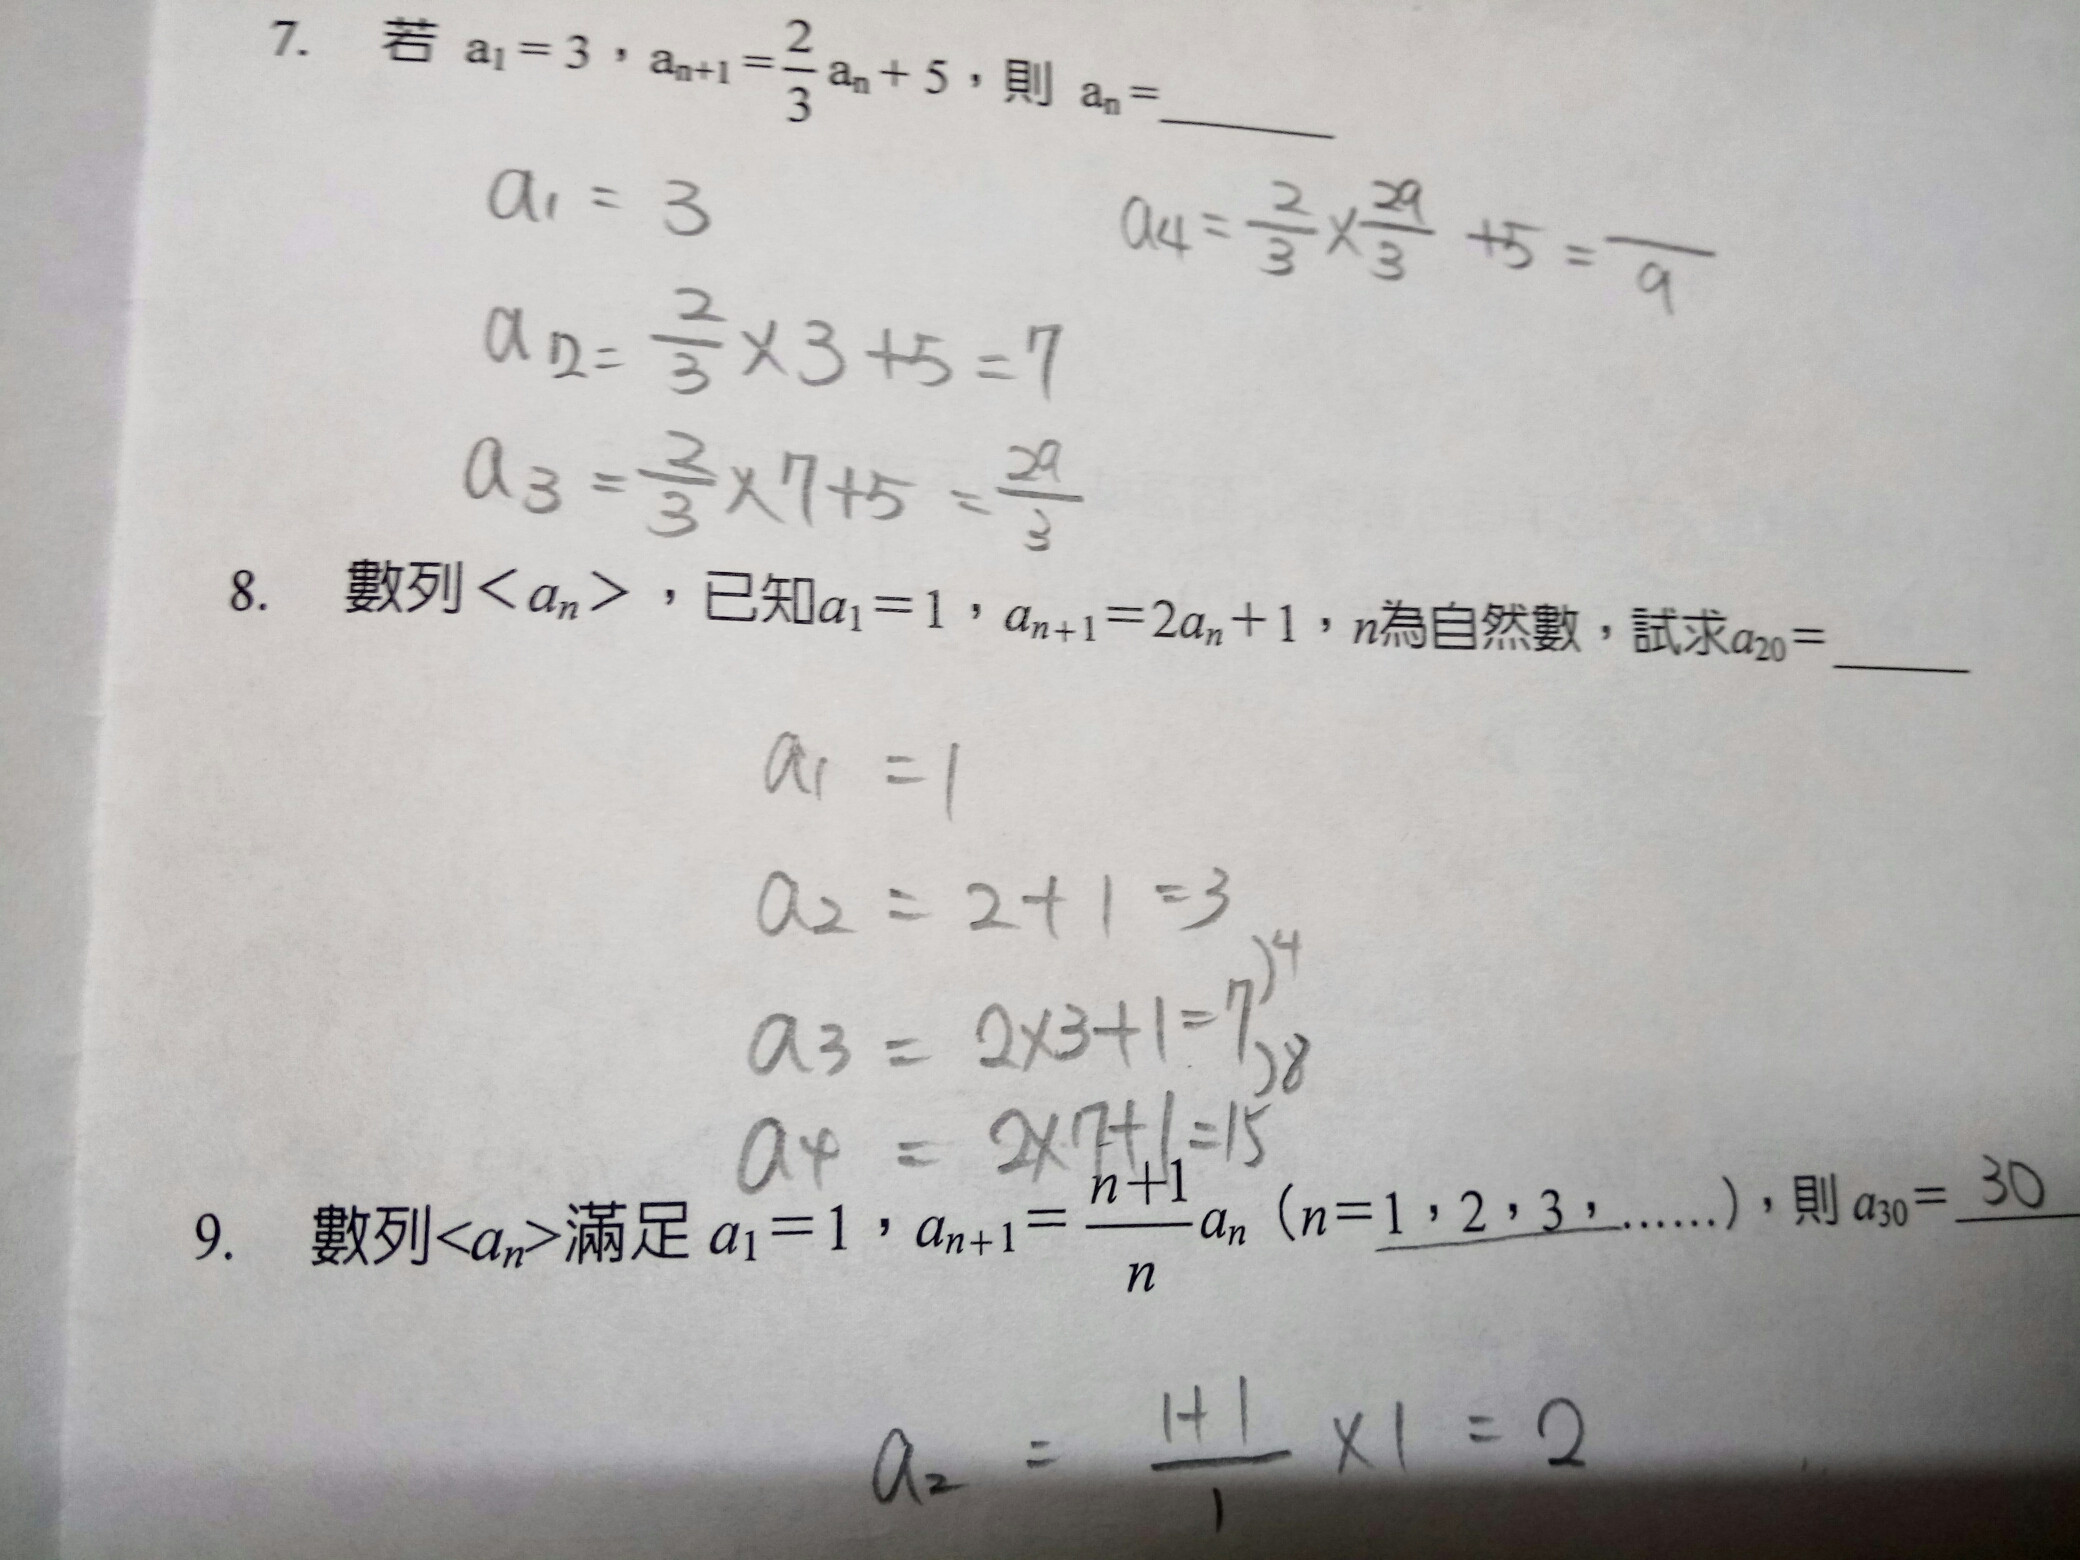 7. 若 a₁=3，aₙ₊₁=2/3 aₙ+5，則 aₙ=______
a₁ = 3
a₂= 2/3 × 3 +5 =7
a₃ = 2/3 × 7+5 = 29/3
a₄= 2/3 × 29/3 +5 = —/9
8. 數列＜aₙ＞，已知a₁=1，aₙ₊₁=2aₙ+1，n為自然數，試求a₂₀=_____
a₁ =1
a₂ = 2+1 =3
)4
a₃ = 2×3+1=7
)8
a₄ = 2×7+1=15
9. 數列<aₙ>滿足 a₁=1，aₙ₊₁= n+1/n aₙ（n=1，2，3，……），則 a₃₀= 30
a₂ = 1+1/1 ×1 = 2